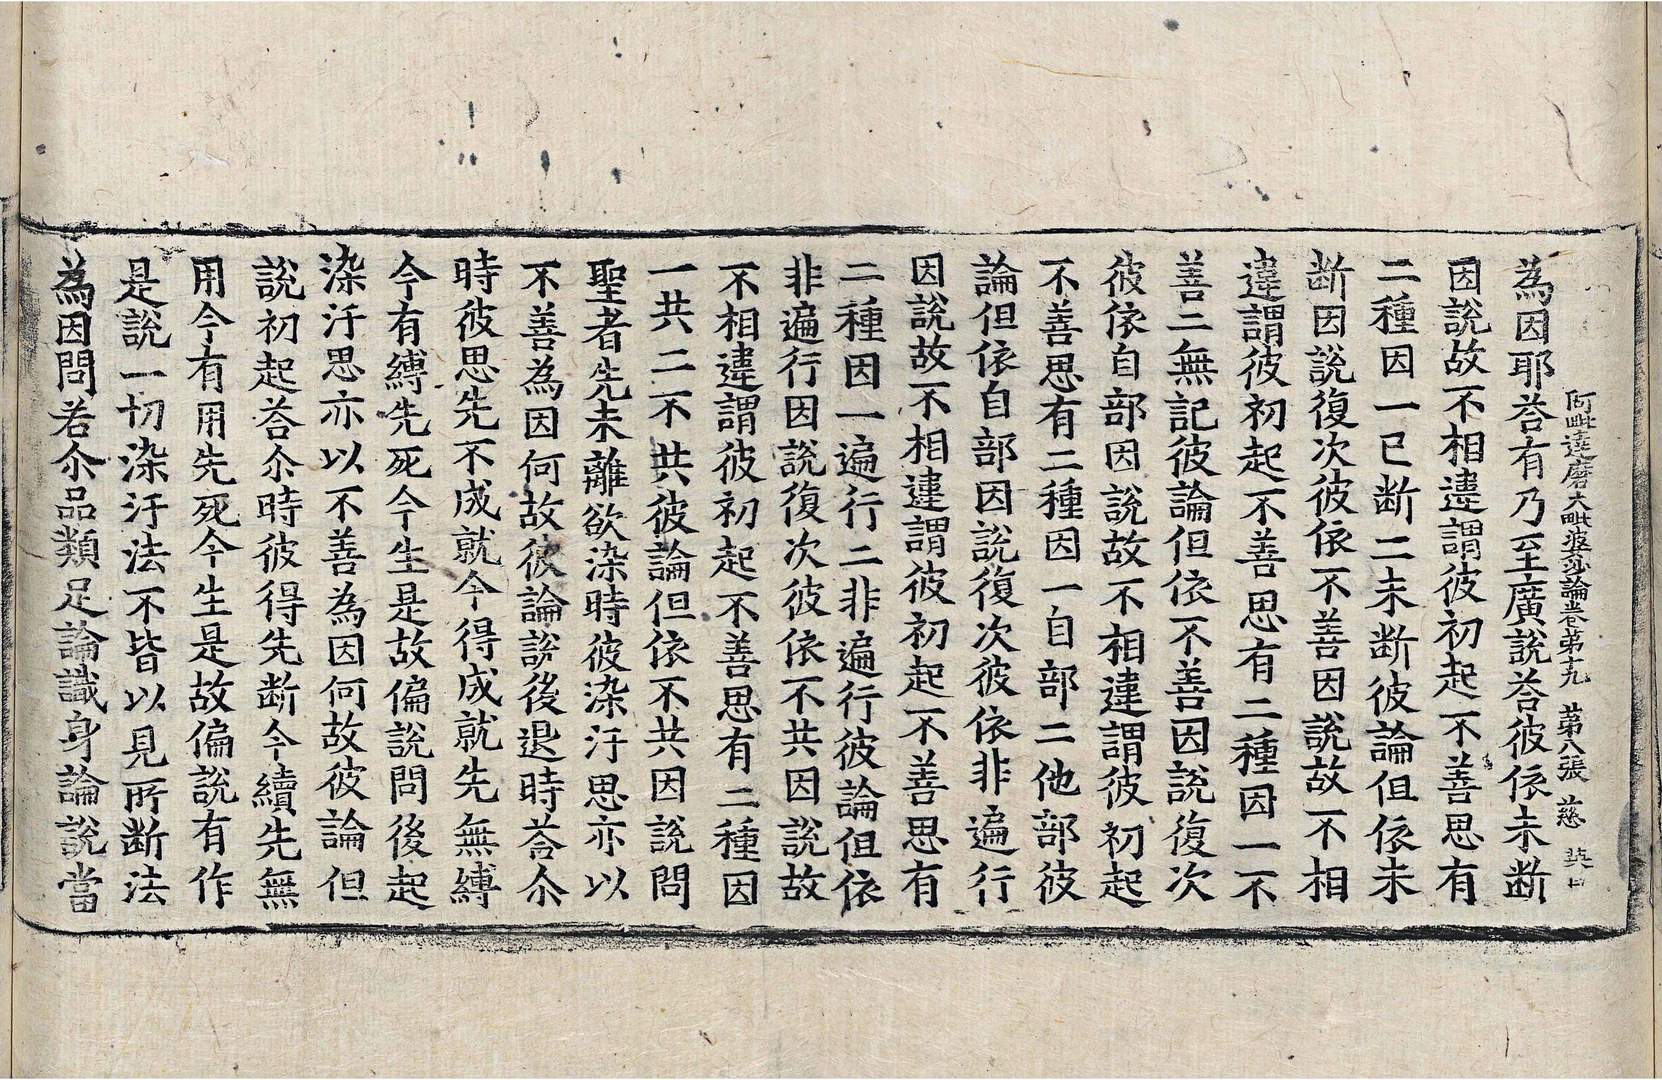 阿毗達磨大毗婆沙論卷第十九 第八張 慈
為因耶荅有乃至廣說荅彼依未断
因說故不相違謂彼初起不善思有
二種因一已断二未断彼論但依未
断因說復次彼依不善因說故不相
違謂彼初起不善思有二種因一不
善二無記彼論但依不善因說復次
彼依自部因說故不相違謂彼初起
不善思有二種因一自部二他部彼
論但依自部因說復次彼依非遍行
因說故不相違謂彼初起不善思有
二種因一遍行二非遍行彼論但依
非遍行因說復次彼依不共因說故
不相違謂彼初起不善思有二種因
一共二不共彼論但依不共因說問
聖者先未離欲染時彼染汙思亦以
不善為因何故彼論說後退時荅尒
時彼思先不成就今得成就先無縛
今有縛先死今生是故偏說問後起
染汙思亦以不善為因何故彼論但
說初起荅尒時彼得先断今續先無
用今有用先死今生是故偏說有作
是說一切染汙法不皆以見所断法
為因問若尒品類足論識身論說當